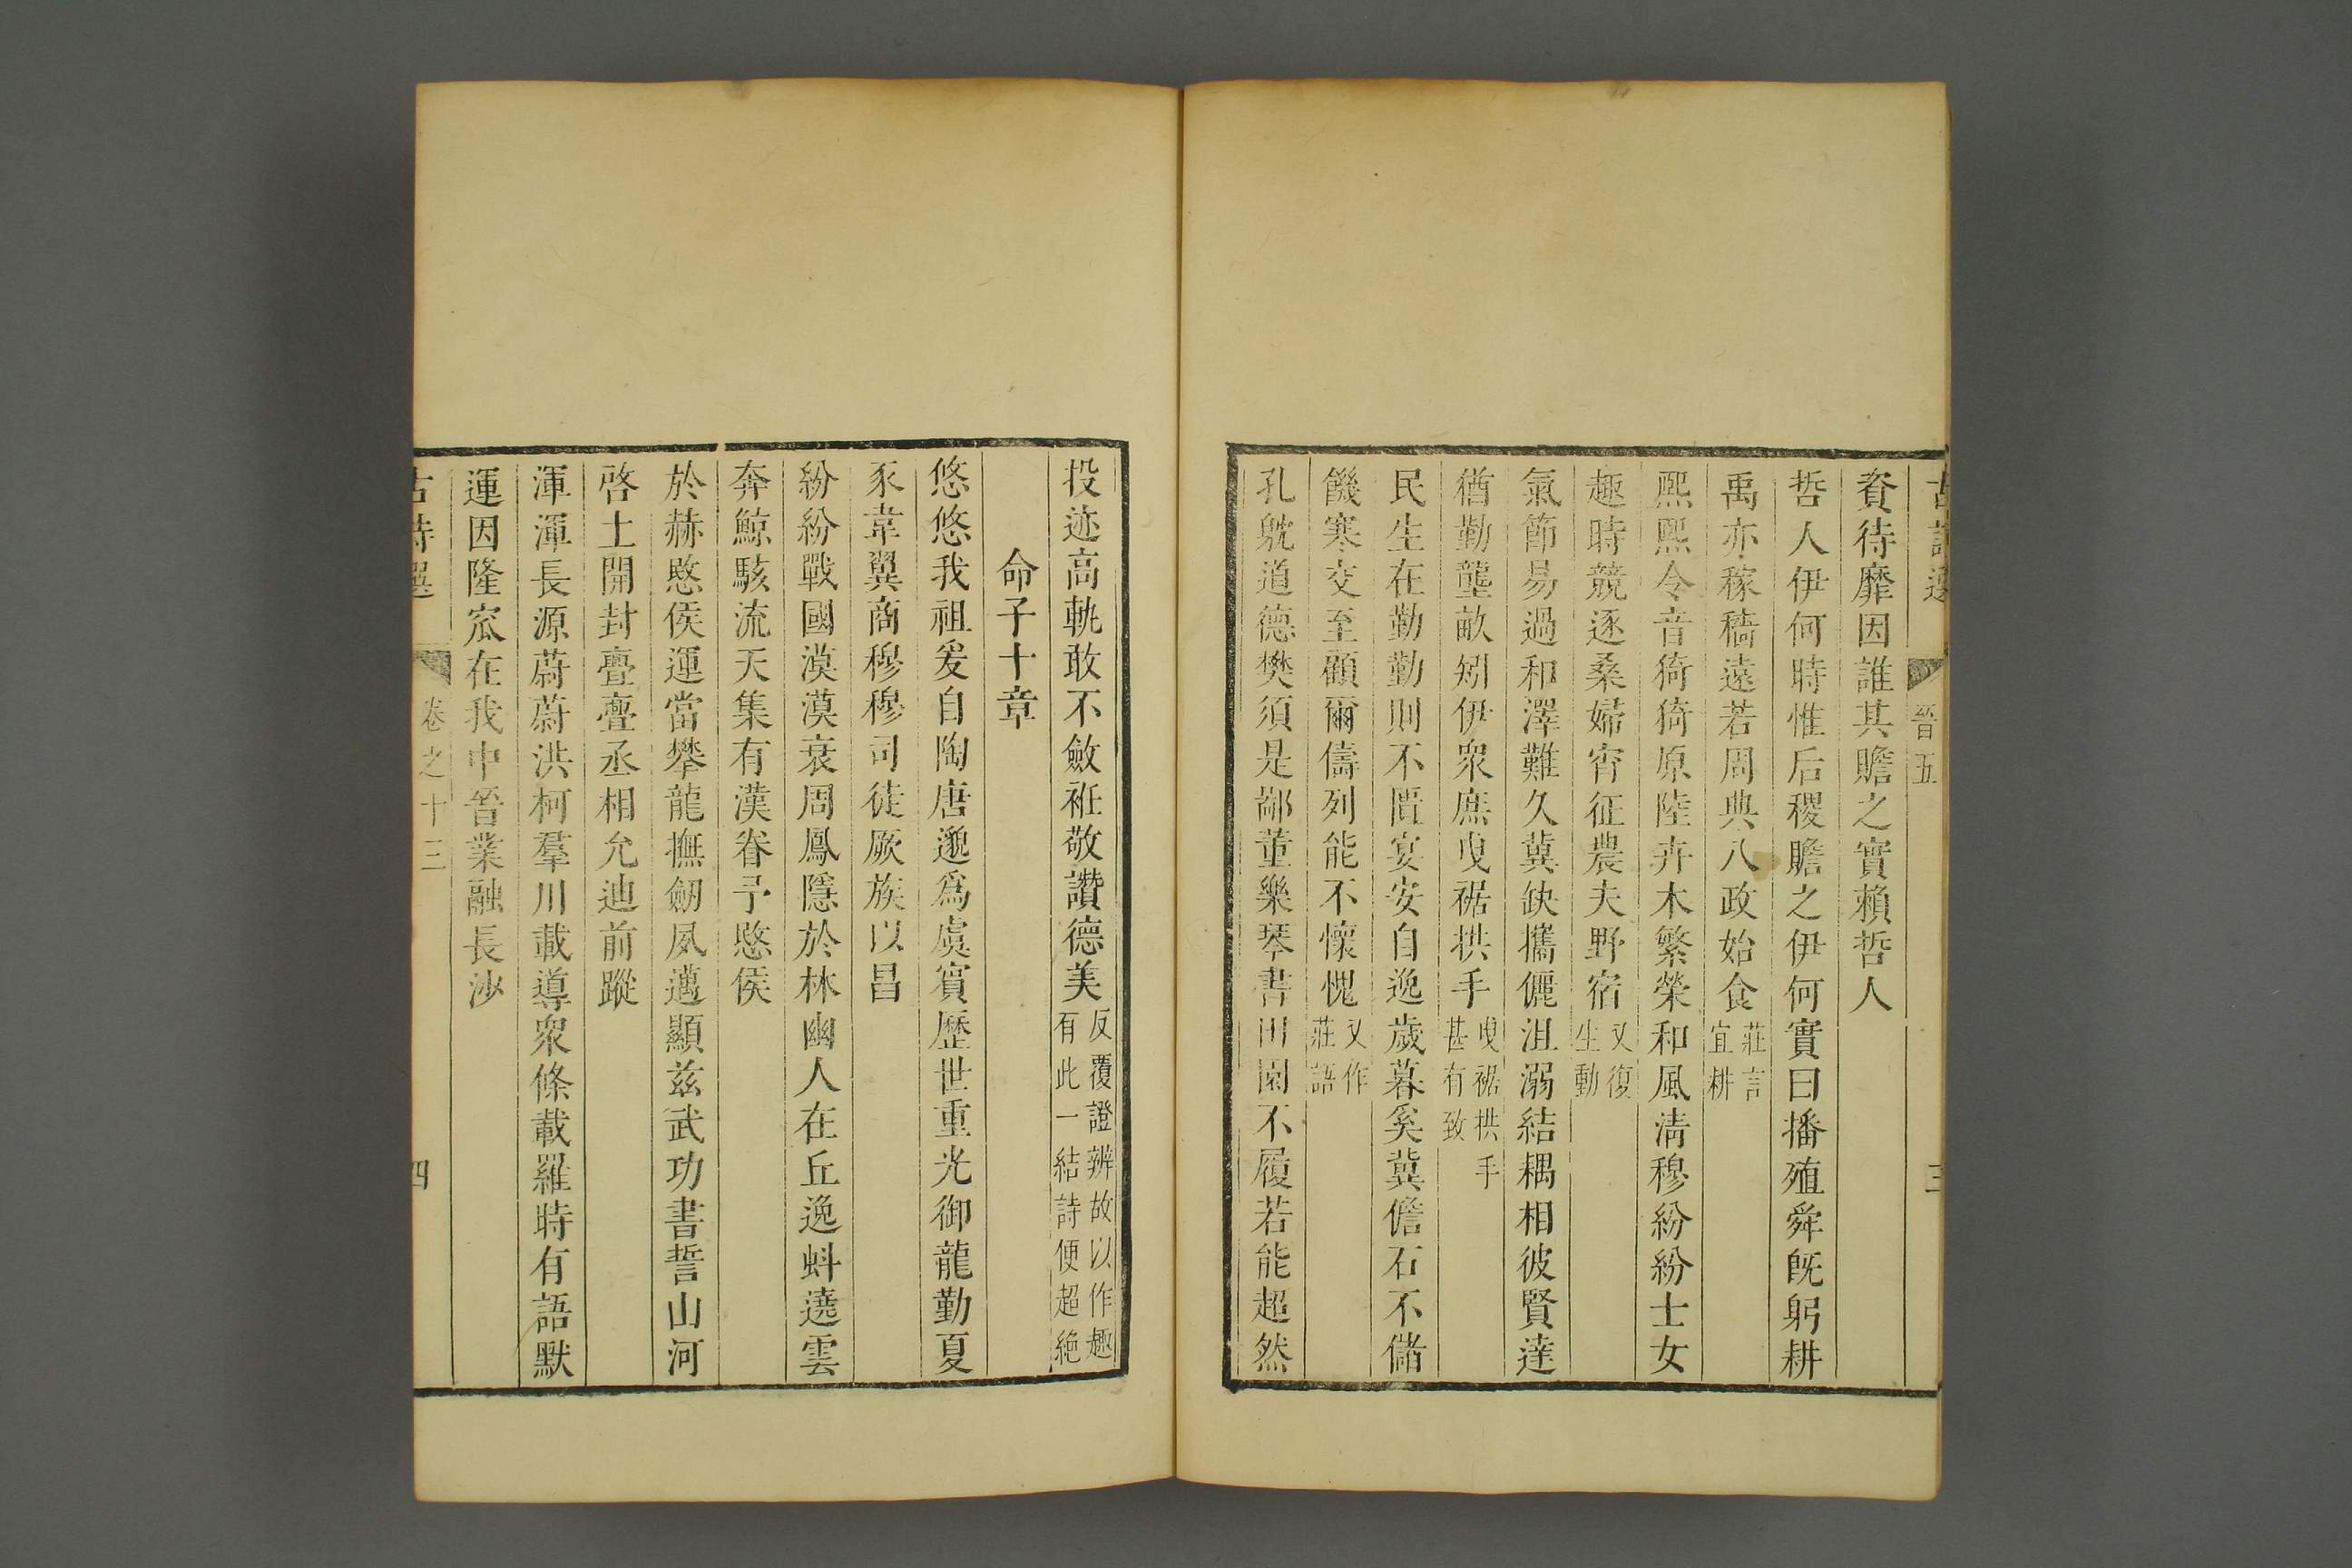 古詩選 晉五 三
資待靡因誰其贍之實賴哲人
哲人伊何時惟后稷贍之伊何實曰播殖舜旣躬耕
禹亦稼穡遠若周典八政始食莊言宜耕
熙熙令音猗猗原陸卉木繁榮和風淸穆紛紛士女
趣時競逐桑婦宵征農夫野宿又復生動
氣節易過和澤難久冀缺攜儷沮溺結耦相彼賢達
猶勤壟畝矧伊衆庶曳裾拱手曳裾拱手甚有致
民生在勤勤則不匱宴安自逸歲暮奚冀儋石不儲
饑寒交至顧爾儔列能不懷愧又作莊語
孔躭道德樊須是鄙董樂琴書田園不履若能超然
投迹高軌敢不斂衽敬讚德美反覆證辨故以作趣有此一結詩便超絶
命子十章
悠悠我祖爰自陶唐邈爲虞賓歷世重光御龍勤夏
豕韋翼商穆穆司徒厥族以昌
紛紛戰國漠漠衰周鳳隱於林幽人在丘逸虯遶雲
奔鯨駭流天集有漢眷予愍侯
於赫愍侯運當攀龍撫劒夙邁顯茲武功書誓山河
啓土開封亹亹丞相允迪前蹤
渾渾長源蔚蔚洪柯羣川載導衆條載羅時有語默
運因隆窊在我中晉業融長沙
古詩選 卷之十三 四